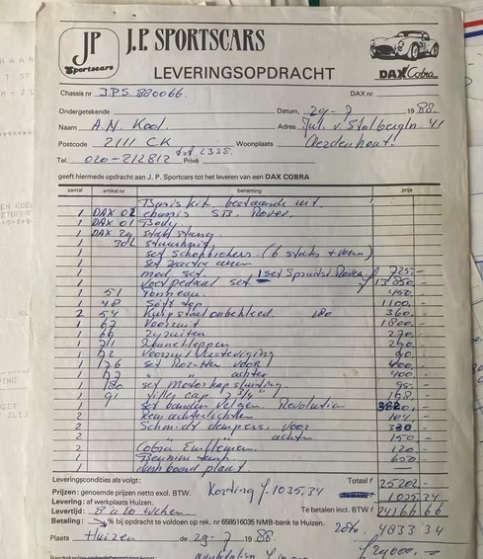 JP
Sportscars
J.P. SPORTSCARS
LEVERINGSOPDRACHT
DAX Cobra
Chassis nr J.P.S. 880066. DAX nr
Ondergetekende Datum, 29-7 1988.
Naam A.N. Kool. Adres Jul. v. Stolbergln 41
Postcode 2111 CK Woonplaats Aerdenhout!
Tel. 020-212812 tst 2338. Privé
geeft hiermede opdracht aan J. P. Sportcars tot het leveren van een DAX COBRA
aantal artikel nr benaming prijs
Basis kit, bestaande uit.
1 DAX 02 chassis S.B. Rover.
1 DAX 01 Body.
1 DAX 29 stab stang.
1 302 stuurhuis
1 set schokbrekers. (6 stuks + veren)
1 set
1 set 1 set Spruitst. Rover f 725,-
1 pedaal set 13.850,-
1 51 Tonneau. 450
1 48 Soft top 1100,-
2 54 Kuip stoel onbekleed 180 360,-
1 67 Voorruit 1800,-
1 Zyruiten 270,-
1 71 Zonnekleppen 240,-
1 72 Voorruit versteviging
1 176 set Roosters voor 400,-
1 " " achter 400,-
1 180 set Motorkap sluiting. 95-
1 91 Filler cap 2 3/4" 168,-
1 set banden velgen Revolution
2 Rem achterlichten 104,-
2 Schmidt dempers. voor
2 " " achter 150,-
2 Cobra Emblemen. 120,-
1 Benzine tank. 650,-
1 dashboard plaat.
Leveringscondities als volgt: Totaal f 25202-
Prijzen: genoemde prijzen netto excl. BTW. Korting f. 1035,34 1.035,34
Levering: af werkplaats Huizen.
Levertijd: 8 à 10 weken Te betalen incl. BTW f 24166 66
Betaling: % bij opdracht te voldoen op rek. nr 658516035 NMB-bank te Huizen. 20% 4833 34
Plaats Huizen de 29-7 1988. f 29000,-